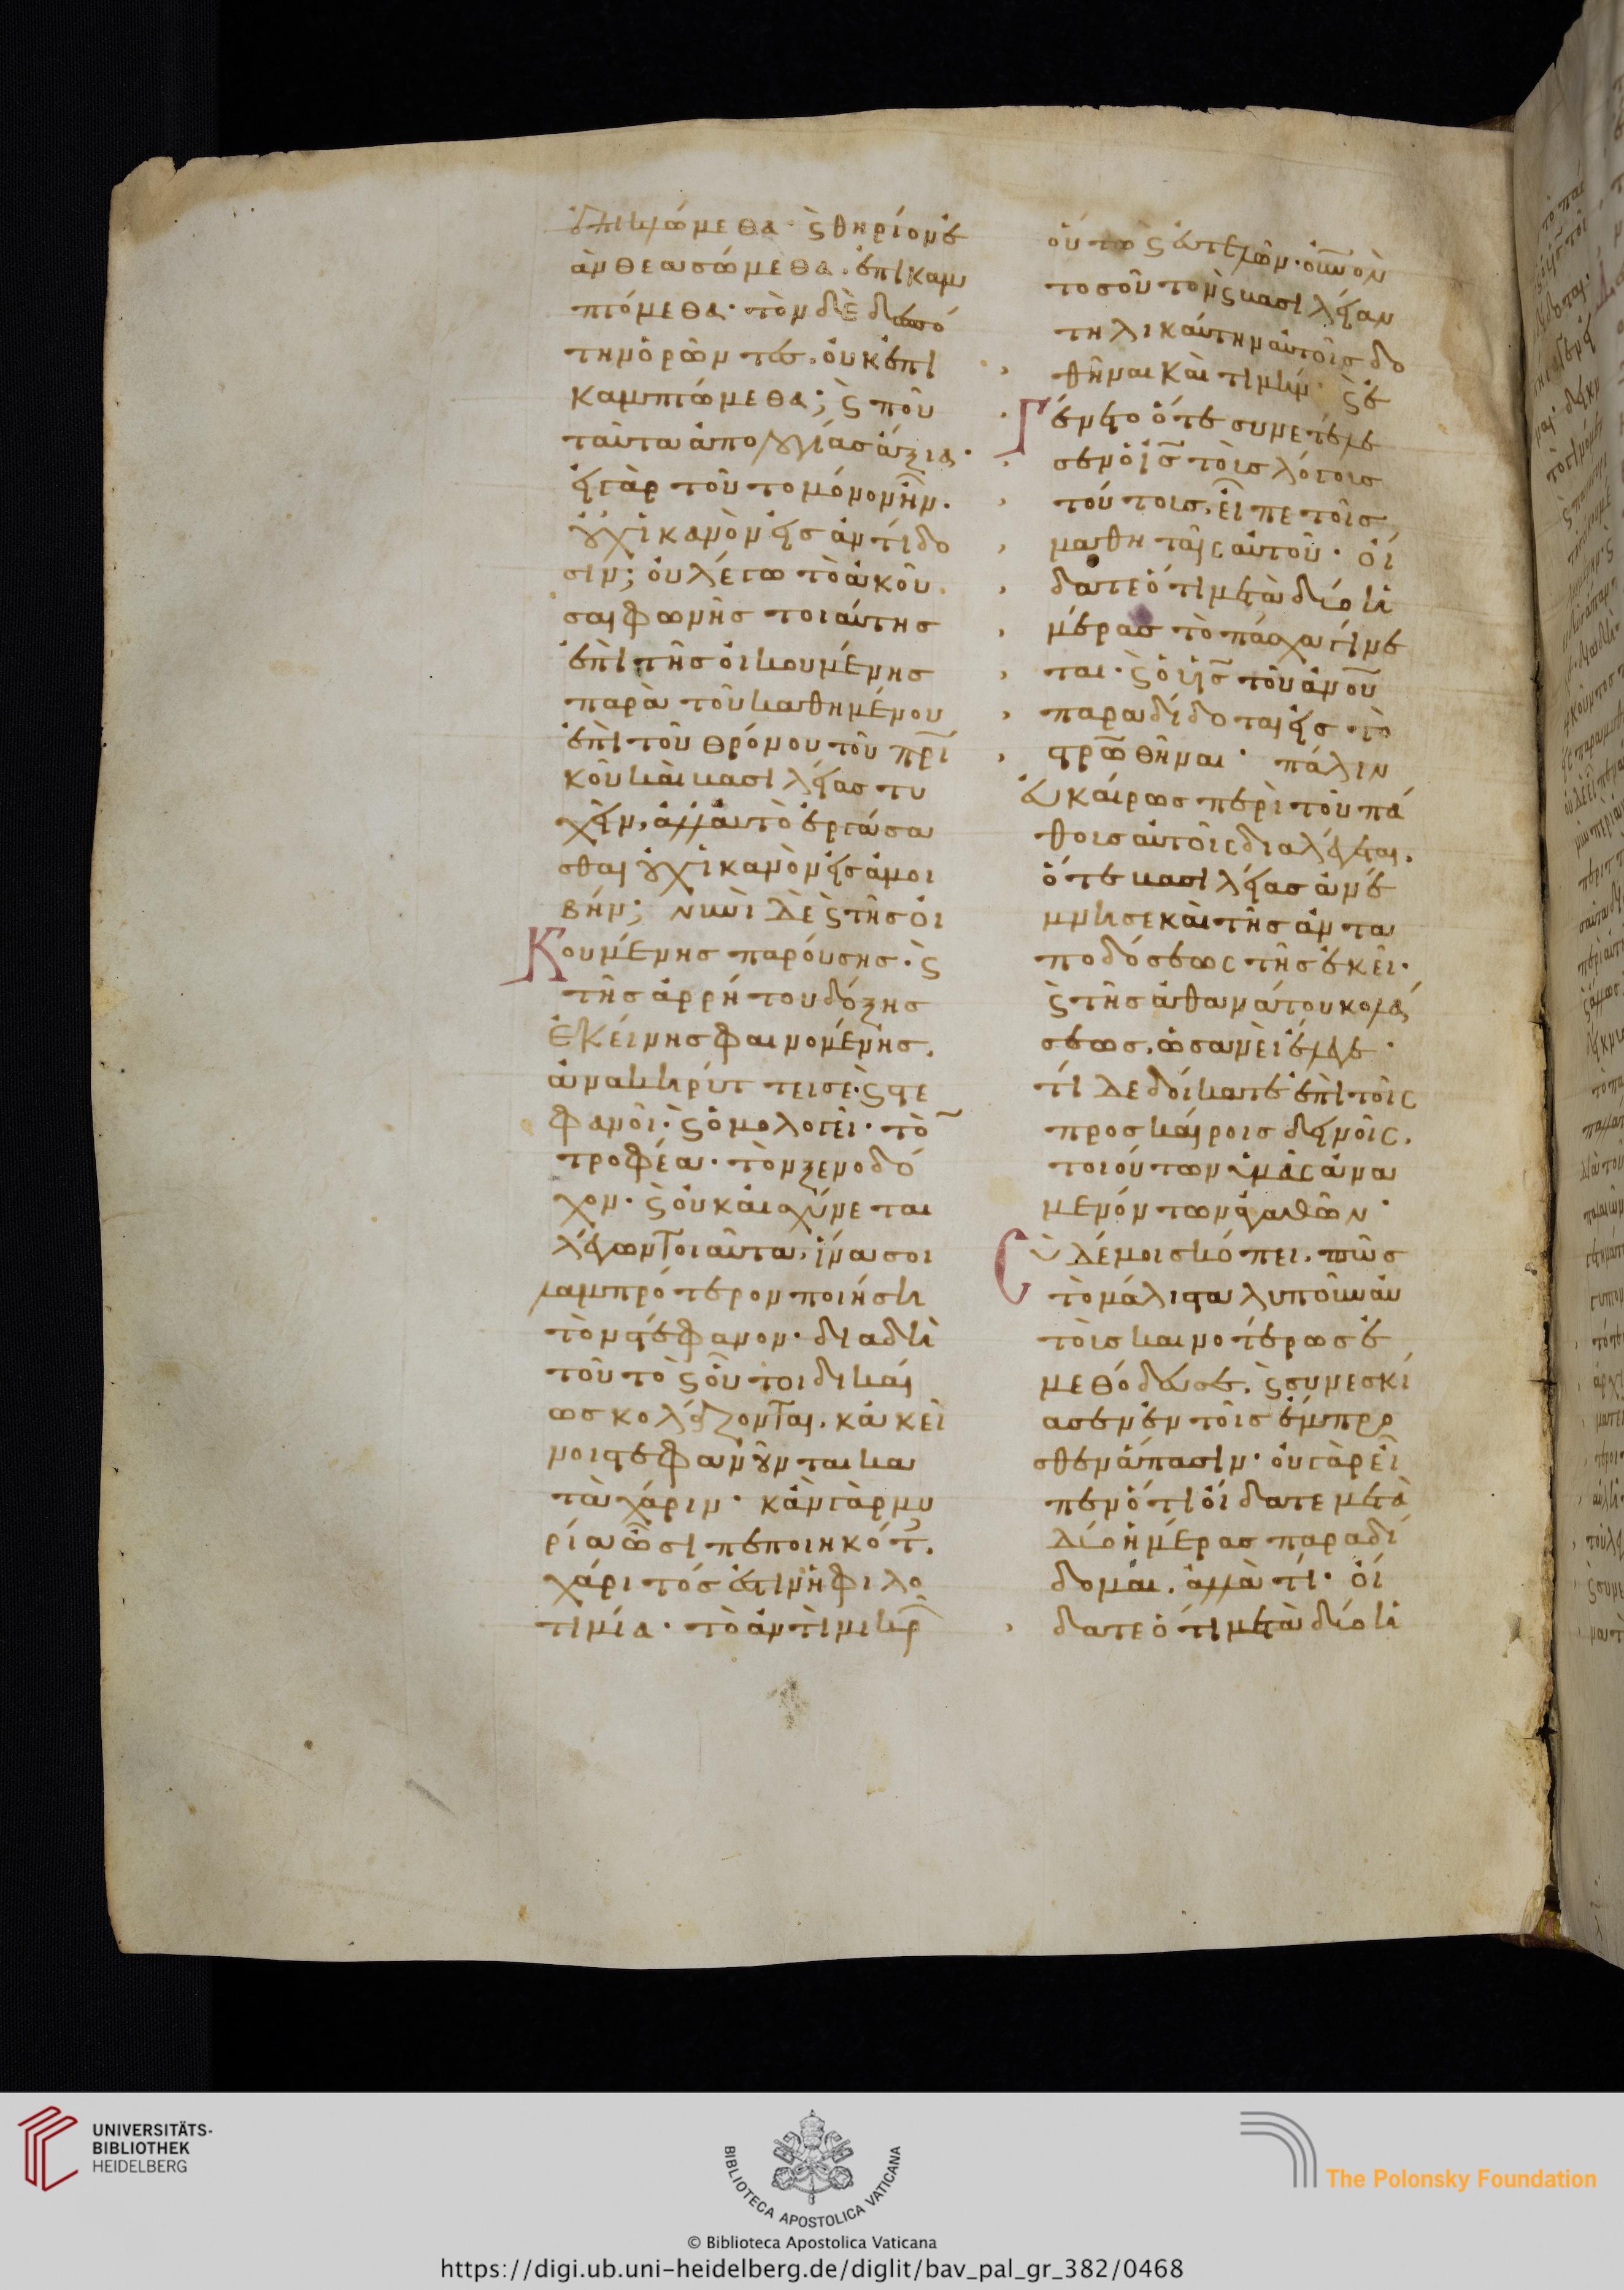 ἐπικλώμεθα· ϛ θηρίον ἐ
ὰν θεασώμεθα. ἐπικαμ
πτόμεθα· τὸν δὲ δεσπό
την ὁρῶντες. οὐκ ἐπι
καμπτώμεθα; ϛ ποῦ
ταῦτα ἀπολογίας ἄξια·
εἰ γὰρ τοῦτο μόνον ἦν.
οὐχ ἱκανὸν εἰς ἀντίδο
σιν; οὐ λέγω τὸ ἀκοῦ
σαι φωνῆς τοιαύτης
ἐπὶ τῆς οἰκουμένης
παρὰ τοῦ καθημένου
ἐπὶ τοῦ θρόνου τοῦ πρι
κοῦ καὶ βασιλείας τυ
χεῖν, ἀλλ' αὐτὸ ἐργάσα
σθαι οὐχ ἱκανὸν εἰς ἀμοι
βήν; νυνὶ δὲ ϛ τῆς οἰ
Κουμένης παρούσης. ϛ
τῆς ἀρρήτου δόξης
ἐκείνης φαινομένης.
ἀνακηρύττει σε. ϛ στε
φανοῖ. ϛ ὁμολογεῖ. τὸ
τροφέα. τὸν ξενοδό
χον. ϛ οὐκ αἰσχύνεται
λέγων τοιαῦτα, ἵνα σοι
λαμπρότερον ποιήσῃ
τὸν στέφανον. διὰ δὴ
τοῦτο ϛ οὗτοι δικαί
ως κολάζονται. κἀκεῖ
νοι στεφανοῦνται κα
τὰ χάριν. κἂν γὰρ μυ
ρία ὦσι πεποιηκότ.
χάριτός ἐστιν ἡ φιλο
τιμία. τὸ ἀντὶ μικρ
οὕτως εὐτελῶν. οὐνὸν
τοσοῦτον ϛ βασιλείαν
τηλικαύτην αὐτοῖς δο
θῆναι καὶ τιμήν. ϛ ἐ
Γένετο ὅτε συνετέλε
σεν ὁ ἰς τοὺς λόγους
τούτοις. εἶπε τοῖς
μαθηταῖς αὐτοῦ. οἴ
δατε ὅτι μετὰ δύο ἡ
μέρας τὸ πάσχα γίνε
ται. ϛ ὁ υἱς τοῦ ἀνου
παραδίδοται εἰς τὸ
στρωθῆναι. πάλιν
εὐκαίρως περὶ τοῦ πά
θοις αὐτοῖς διαλέγεται.
ὅτε βασιλείας ἀνέ
μνησε καὶ τῆς ἀντα
ποδόσεως τῆς ἐκεῖ.
ϛ τῆς ἀθανάτου κολά
σεως. ὡσανεὶ ἔλεγε.
τί δεδοίκατε ἐπὶ τοῖς
προσκαίροις δεινοῖς.
τοιούτων ὑμᾶς ἀνα
μενόντων ἀγαθῶν.
Σὺ δέ μοι σκόπει. πῶς
τὸ μάλιστα λυποῦν αὐ
τοὺς καινοτέρως ἐ
μεθόδευσε. ϛ συνεσκί
ασεν ἐν τοῖς ἔμπρο
σθεν ἅπασιν. οὐ γὰρ εἶ
πεν ὅτι οἴδατε μετὰ
δύο ἡμέρας παραδί
δομαι. ἀλλὰ τί. οἴ
δατε ὅτι μετὰ δύο ἡ
UNIVERSITÄTS-
BIBLIOTHEK
HEIDELBERG
BIBLIOTECA APOSTOLICA VATICANA
The Polonsky Foundation
© Biblioteca Apostolica Vaticana
https://digi.ub.uni-heidelberg.de/diglit/bav_pal_gr_382/0468